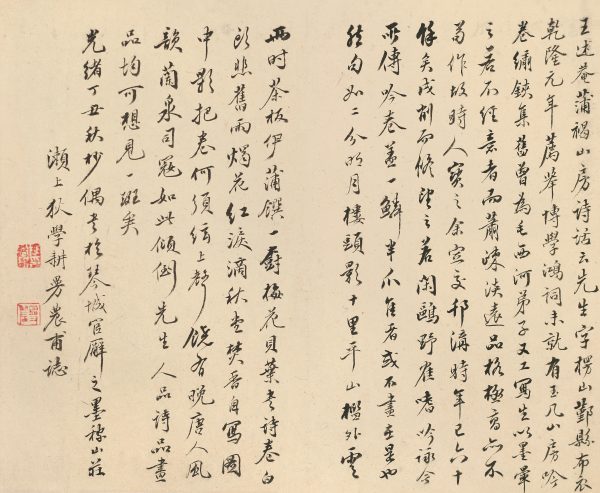 王述菴蒲褐山房詩話云先生字楞山鄞縣布衣
乾隆元年薦舉博學鴻詞未就有玉几山房吟
卷繡鋏集舊曾為毛西河弟子又工寫生以墨暈
之若不經意者而蕭疎淡遠品格極高亦不
苟作故時人寶之余定交邗溝時年已六十
餘矣戍削而修望之若閑鷗野雀嗜吟詠今
所傳吟卷蓋一鱗半爪佳者或不盡在是也
絶句如二分明月樓頭影十里平山檻外雲
雨时茶板伊蒲饌一廚梅花貝葉老詩卷白
頭悲舊雨燭花紅淚滴秋
焚香自寫圖
中影把卷何須絃上聲饒有晚唐人風
韻蘭泉司寇如此傾倒先生人品詩品畫
品均可想見一斑矣
光緒丁丑秋杪偶書於琴城官廨之墨稼山莊
瀬上狄學耕曼農甫誌